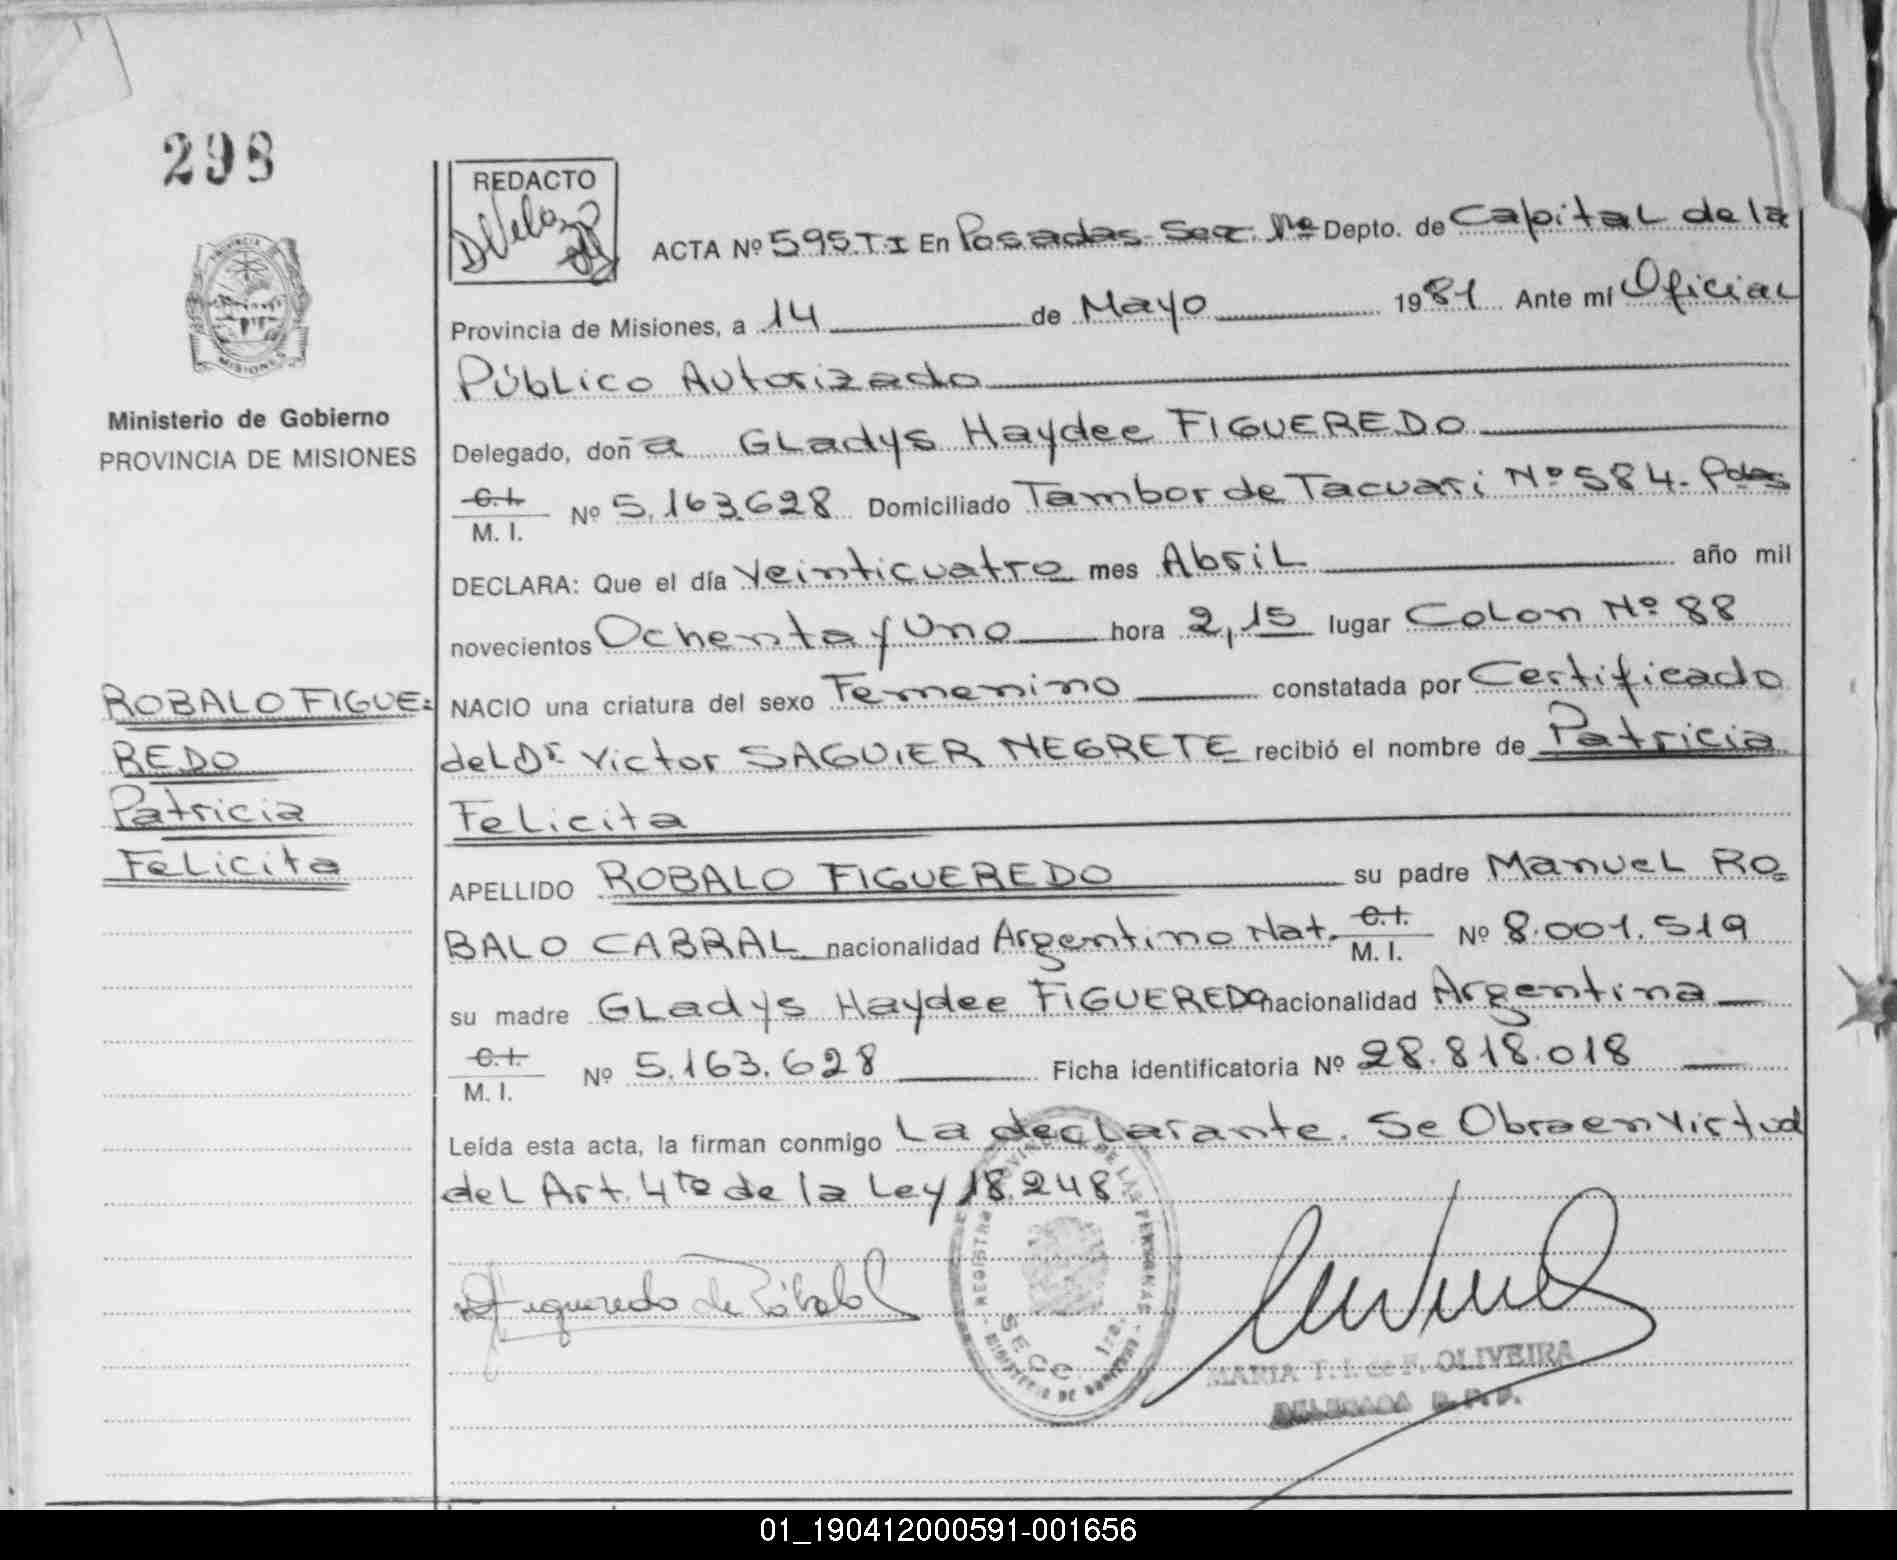 298
REDACTO
ACTA Nº 595.T.I En Posadas Sec. 1ª Depto. de Capital de la
Provincia de Misiones, a 14 de Mayo 1981 Ante mí Oficial
Público Autorizado
PROVINCIA
MISIONES
Ministerio de Gobierno
PROVINCIA DE MISIONES
Delegado, doña Gladys Haydee FIGUEREDO
C.I.
M. I. Nº 5.163.628 Domiciliado Tambor de Tacuari Nº 584. Pdas
DECLARA: Que el día Veinticuatro mes Abril año mil
novecientos Ochenta y Uno hora 2,15 lugar Colon Nº 88
NACIO una criatura del sexo Femenino constatada por Certificado
del Dr Victor SAGUIER NEGRETE recibió el nombre de Patricia
Felicita
ROBALO FIGUE=
REDO
Patricia
Felicita
APELLIDO ROBALO FIGUEREDO su padre Manuel RO=
BALO CABRAL nacionalidad Argentino Nat. C.I. M. I. Nº 8.001.519
su madre Gladys Haydee FIGUEREDO nacionalidad Argentina
C.I.
M. I. Nº 5.163.628 Ficha identificatoria Nº 28.818.018
Leída esta acta, la firman conmigo La declarante. Se Obra en Virtud
del Art. 4to de la Ley 18.248
Figueredo de Róbalo
REGISTRO PROVINCIAL DE LAS PERSONAS
SECC. 1ra.
MINISTERIO DE GOBIERNO
MARIA T. I. de F. OLIVEIRA
DELEGADA R. P. P.
01_190412000591-001656